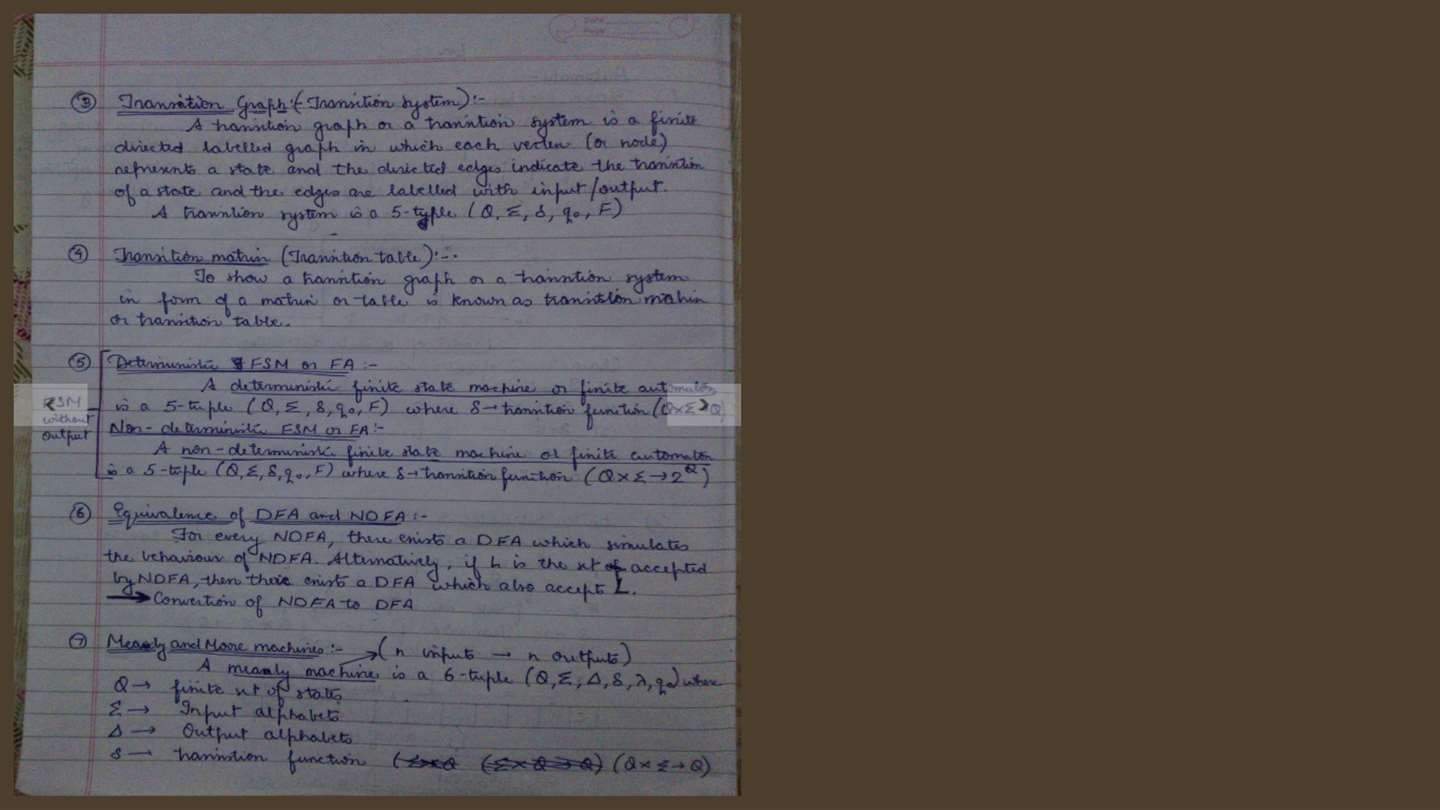 ③ Transition Graph:- (Transition system):-
A transition graph or a transition system is a finite
directed labelled graph in which each vertex (or node)
represents a state and the directed edges indicate the transition
of a state and the edges are labelled with input/output.
A transition system is a 5-tuple (Q, Σ, δ, q₀, F)
④ Transition matrix (Transition table):-.
To show a transition graph or a transition system
in form of a matrix or table is known as transition matrix
or transition table.
⑤ Deterministic FSM or FA :-
A deterministic finite state machine or finite automaton
is a 5-tuple (Q, Σ, δ, q₀, F) where δ → transition function (Q×Σ→Q)
FSM
without
output
Non-deterministic FSM or FA:-
A non-deterministic finite state machine or finite automaton
is a 5-tuple (Q, Σ, δ, q₀, F) where δ → transition function (Q×Σ→2^Q)
⑥ Equivalence of DFA and NDFA :-
For every NDFA, there exists a DFA which simulates
the behaviour of NDFA. Alternatively, if L is the set accepted
by NDFA, then there exists a DFA which also accepts L.
→ Convertion of NDFA to DFA
⑦ Mealy and Moore machines :- (n inputs → n outputs)
A mealy machine is a 6-tuple (Q, Σ, Δ, δ, λ, q₀) where
Q → finite set of states
Σ → Input alphabets
Δ → Output alphabets
δ → transition function (Q×Σ→Q)